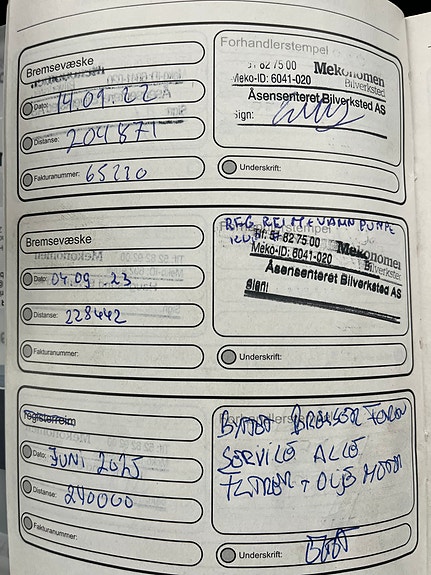 Bremsevæske
Dato: 14.09.22
Distanse: 204871
Fakturanummer: 65220
Forhandlerstempel
82 75 00 Mekonomen
Meko-ID: 6041-020 Bilverksted
Åsensenteret Bilverksted AS
Sign:
Underskrift:
Bremsevæske
Dato: 04.09 23
Distanse: 228442
Fakturanummer:
REG REIM + VANN PUMPE
Tlf: 51 82 75 00 Mekonomen
Meko-ID: 6041-020 Bilverksted
Åsensenteret Bilverksted AS
Sign:
Underskrift:
registerreim
Dato: JUNI 2025
Distanse: 240000
Fakturanummer:
Forhandlerstempel
BYTTET BREMSER FORAN
SERVICE ALLE
FILTRER + OLJE MOTOR
Underskrift: